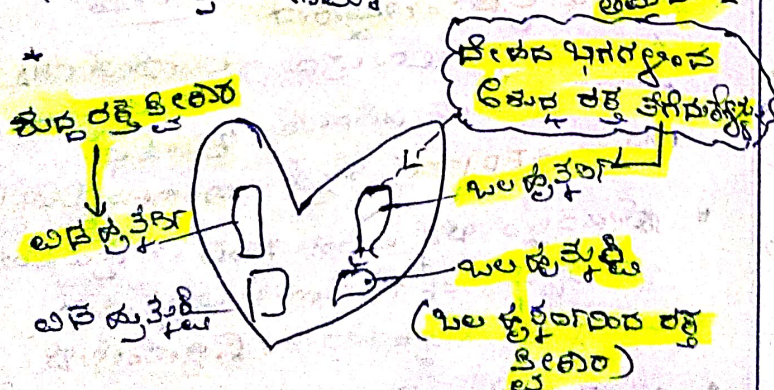 *
ದೇಹದ ಭಾಗಗಳಿಂದ
ಅಶುದ್ಧ ರಕ್ತ
ಶುದ್ಧ ರಕ್ತ ಸ್ವೀಕಾರ
ಬಲ ಹೃತ್ಕರ್ಣ
ಎಡ ಹೃತ್ಕರ್ಣ
ಬಲ ಹೃತ್ಕುಕ್ಷಿ
ಎಡ ಹೃತ್ಕುಕ್ಷಿ
(ಬಲ ಹೃತ್ಕರ್ಣದಿಂದ ರಕ್ತ
ಸ್ವೀಕಾರ)